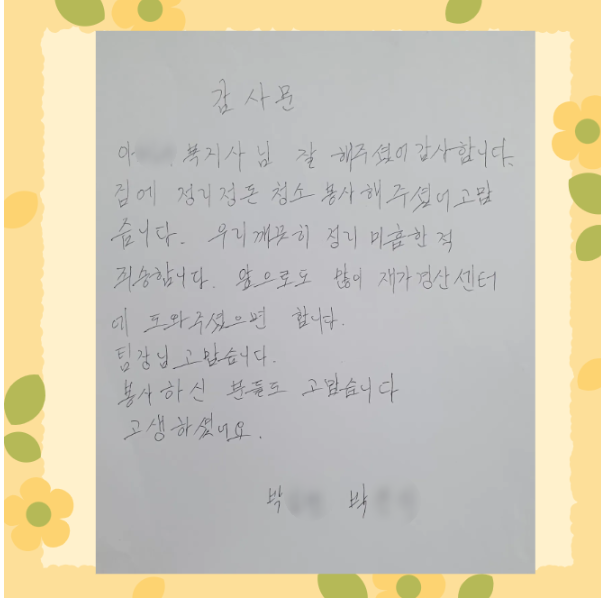 감사문
아 복지사님 잘 해주셨어 감사합니다.
집에 정리정돈 청소 봉사해 주셨어 고맙
습니다. 우리깨끗히 정리 미흡한 적
죄송합니다. 앞으로도 많이 재가경산센터
에 도와주셨으면 합니다.
팀장님 고맙습니다.
봉사하신 분들도 고맙습니다
고생하셨어요.
박 박